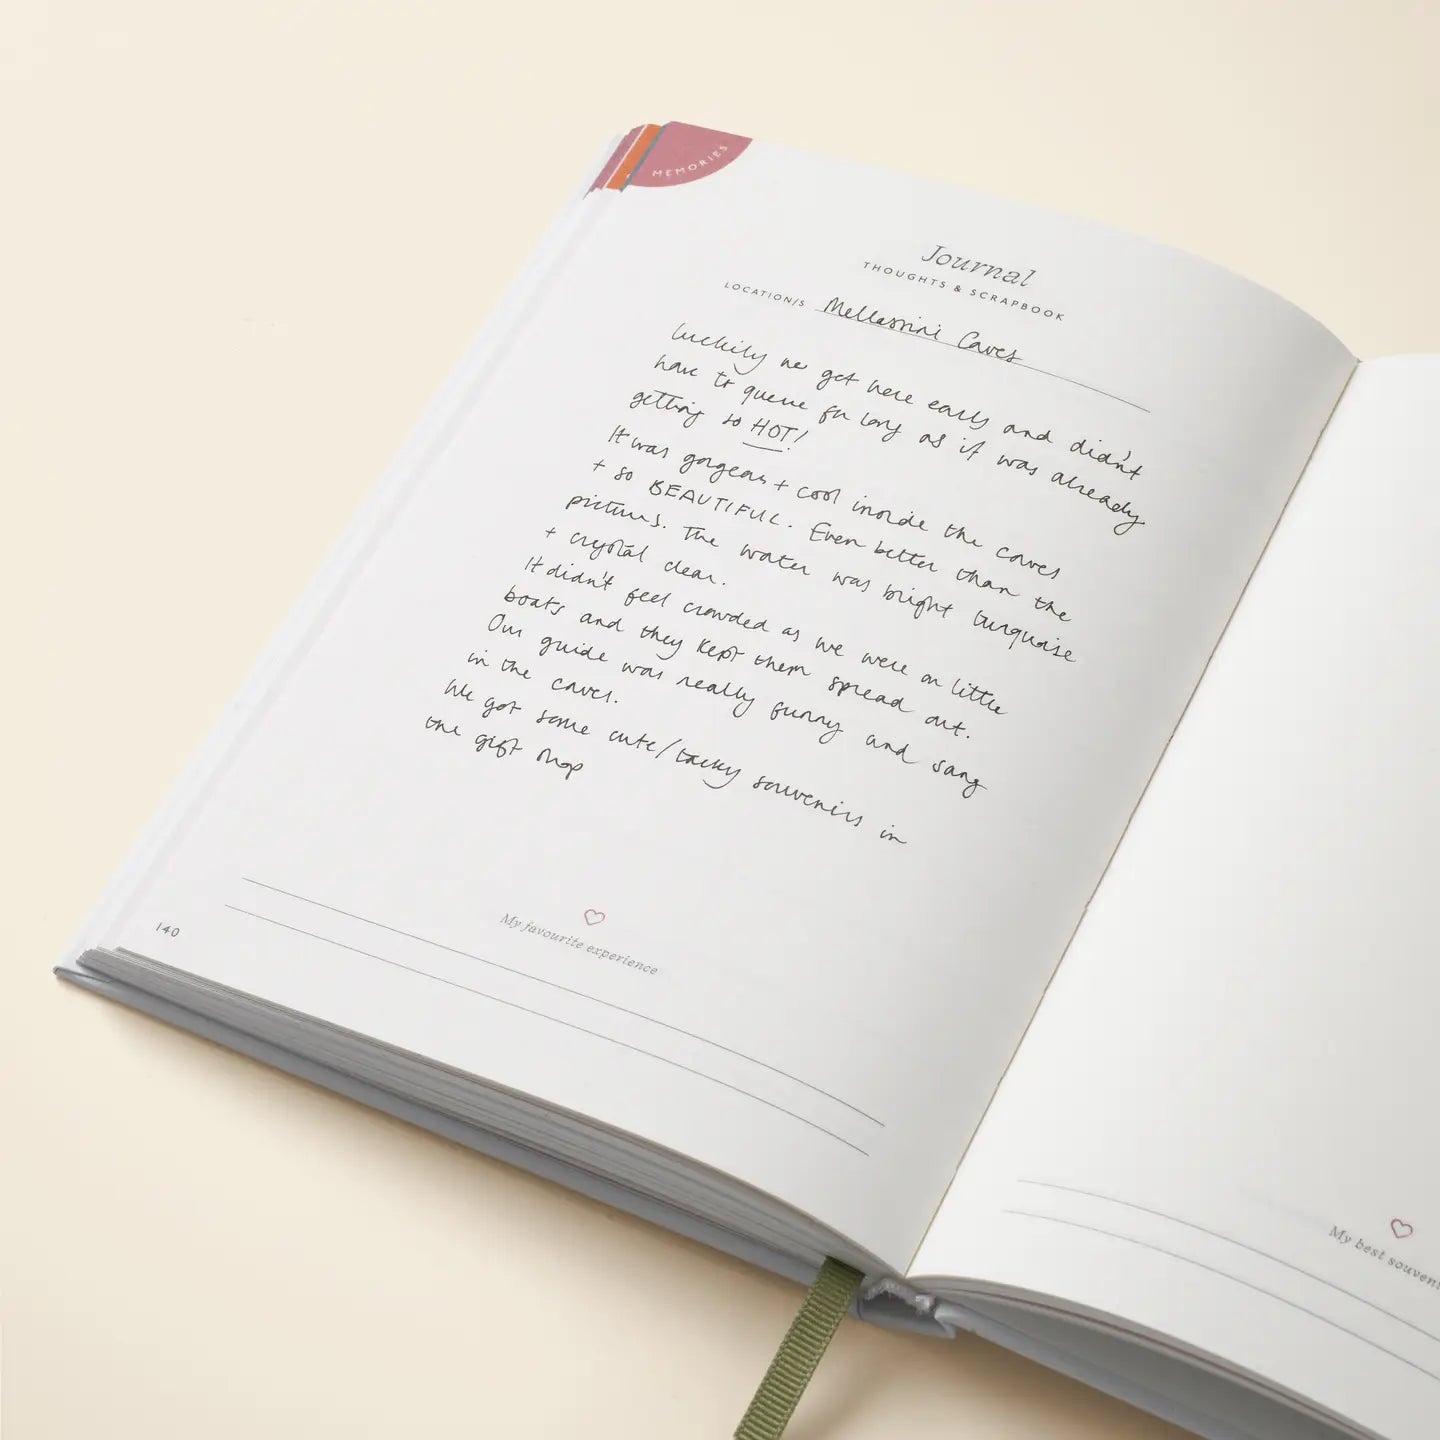 MEMORIES
Journal
THOUGHTS & SCRAPBOOK
LOCATION/S Mellassini Caves
Luckily we got here early and didn't
have to queue for long as it was already
getting so HOT!
It was gorgeous + cool inside the caves
+ so BEAUTIFUL. Even better than the
pictures. The water was bright turquoise
+ crystal clear.
It didn't feel crowded as we were on little
boats and they kept them spread out.
Our guide was really funny and sang
in the caves.
We got some cute/tacky souvenirs in
the gift shop
My favourite experience
140
My best souveni